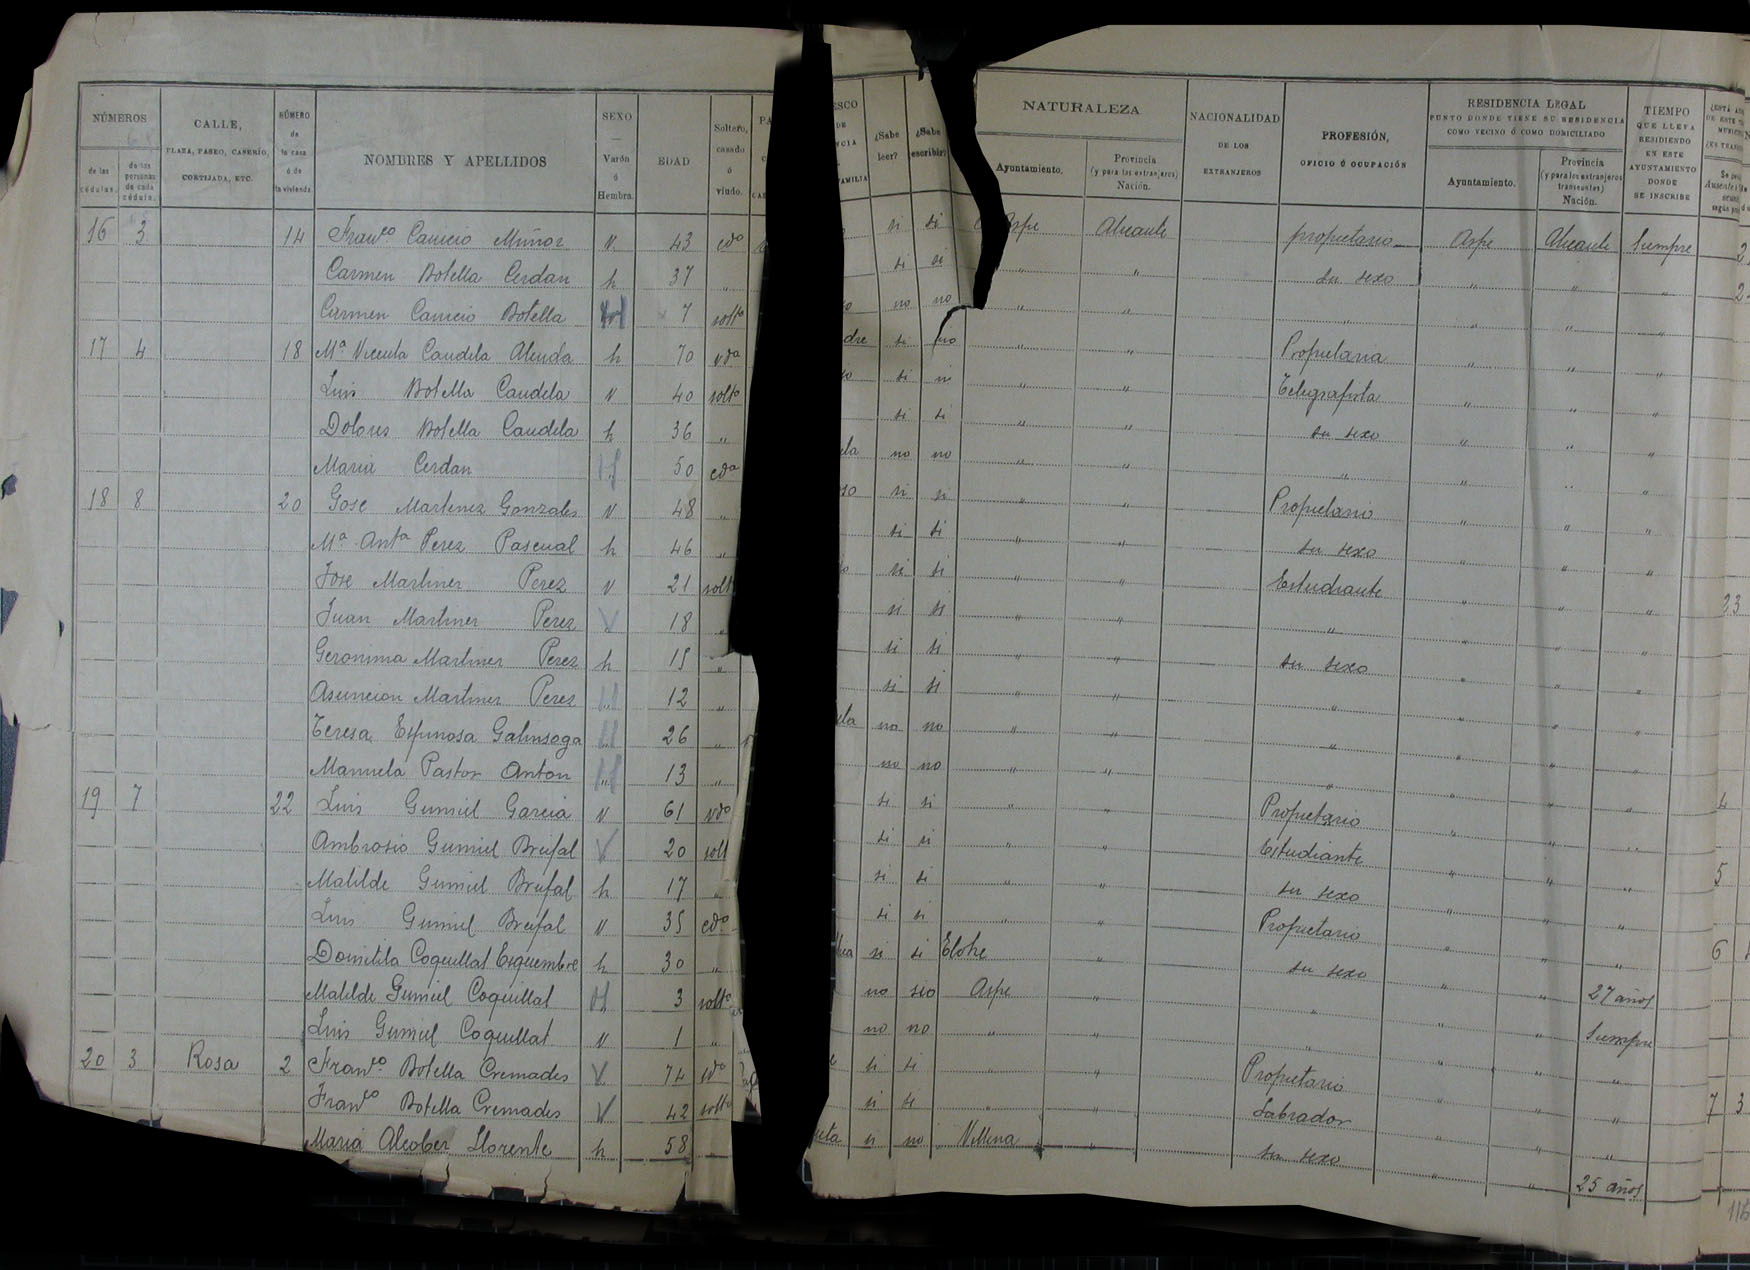 NÚMEROS
de las cédulas.
de las personas de cada cédula.
CALLE,
PLAZA, PASEO, CASERÍO,
CORTIJADA, ETC.
NÚMERO de la casa ó de la vivienda
NOMBRES Y APELLIDOS
SEXO — Varón ó Hembra.
EDAD
Soltero, casado ó viudo.
¿Sabe leer?
¿Sabe escribir?
NATURALEZA
Ayuntamiento.
Provincia (y para los extranjeros) Nación.
NACIONALIDAD DE LOS EXTRANJEROS
PROFESIÓN,
OFICIO Ó OCUPACIÓN
RESIDENCIA LEGAL
PUNTO DONDE TIENE SU RESIDENCIA COMO VECINO Ó COMO DOMICILIADO
Ayuntamiento.
Provincia (y para los extranjeros transeuntes) Nación.
TIEMPO QUE LLEVA RESIDIENDO EN ESTE AYUNTAMIENTO DONDE SE INSCRIBE
16 3 14 Franco. Cañicio Muñoz v. 43 cdo si si Aspe Alicante propietario Aspe Alicante Siempre
Carmen Botella Cerdan h 37 " si si " " su sexo " " "
Carmen Cañicio Botella H 7 solto no no " " " " " "
17 4 18 Ma Vicenta Candela Alenda h 70 vda dre si no " " Propietaria " " "
Luis Botella Candela v 40 solto si si " " Telegrafista " " "
Dolores Botella Candela h 36 " si si " " su sexo " " "
Maria Cerdan H 50 cda no no " " " " " "
18 8 20 José Martinez Gonzales v 48 " si si " " Propietario " " "
Ma Anta Perez Pascual h 46 " si si " " su sexo " " "
Jose Martinez Perez v 21 solt si si " " Estudiante " " "
Juan Martinez Perez V 18 " si si " " " " " "
Geronima Martinez Perez h 15 " si si " " su sexo " " "
Asuncion Martinez Perez H 12 " si si " " " " " "
Teresa Espinosa Galinsoga H 26 " no no " " " " " "
Manuela Pastor Anton H 13 " no no " " " " " "
19 7 22 Luis Gumiel Garcia v 61 vdo si si " " Propietario " " "
Ambrosio Gumiel Brufal V 20 solt si si " " Estudiante " " "
Matilde Gumiel Brufal h 17 " si si " " su sexo " " "
Luis Gumiel Brufal v 35 cdo si si " " Propietario " " "
Domitila Coquillat Esquembre h 30 " si si Elche " su sexo " " 27 años
Matilde Gumiel Coquillat H 3 solto no no Aspe " " " " Siempre
Luis Gumiel Coquillat v 1 " no no " " " " " "
20 3 Rosa 2 Franco. Botella Cremades V 74 si si " " Propietario " " "
Franco Botella Cremades V 42 solto si si " " Labrador " " "
Maria Alcober Llorente h 58 " si no Villena " su sexo " " 25 años